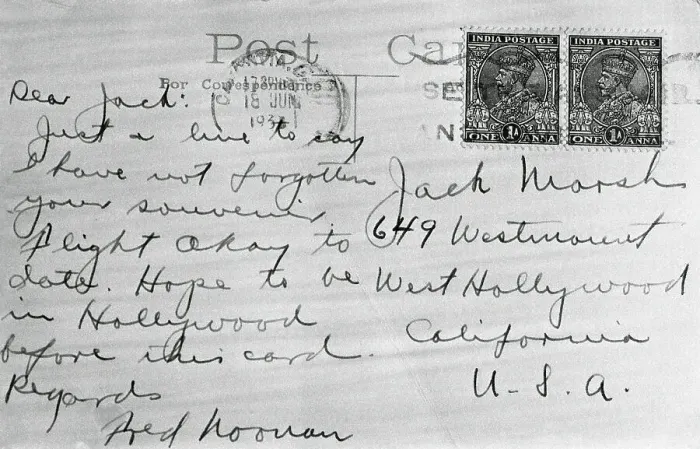 Post Ca
For Correspondence
18 JUN
193
INDIA POSTAGE
ONE 1A ANNA
INDIA POSTAGE
ONE 1A ANNA
SE
Dear Jack:
Just a line to say
I have not forgotten
your souvenir.
Flight okay to
date. Hope to be
in Hollywood
before this card.
Regards
Fred Noonan
Jack Marsh
649 Westmount
West Hollywood
California
U.S.A.